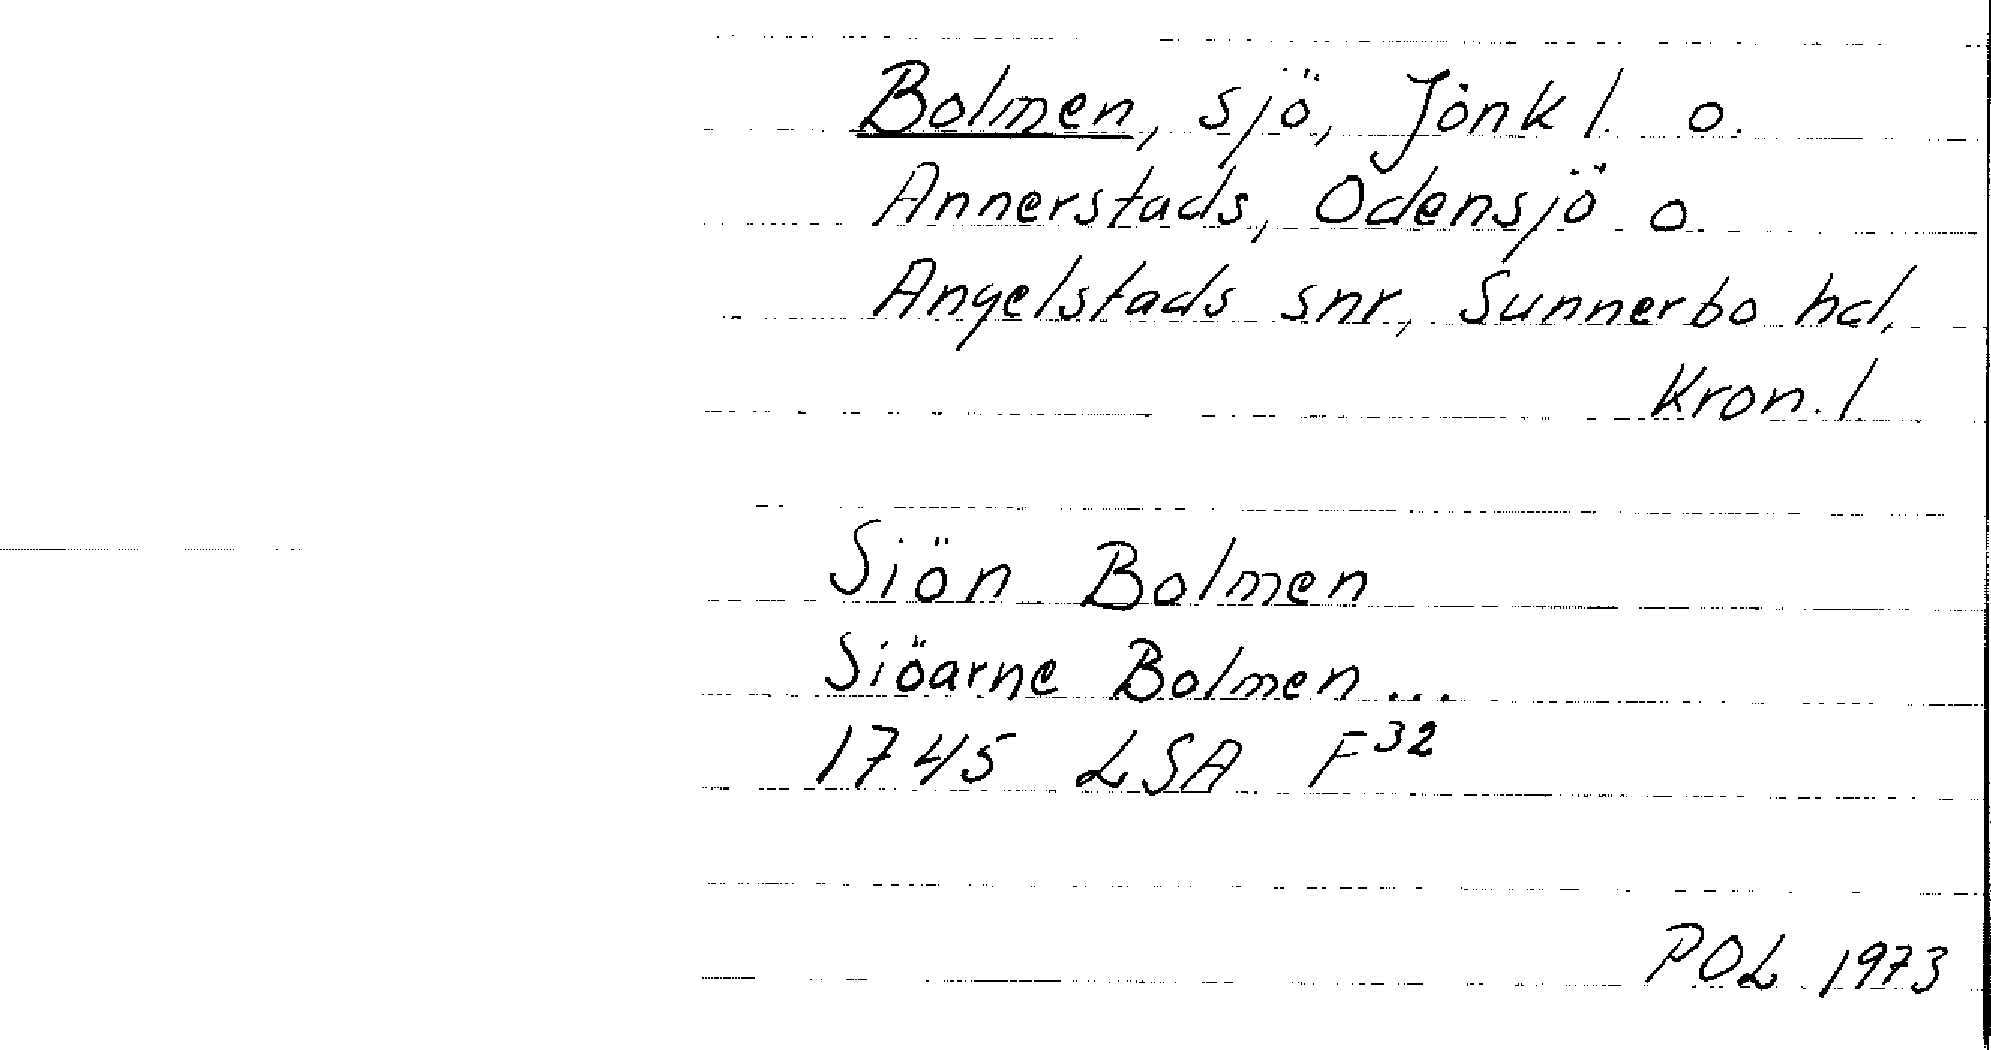 Bolmen, sjö, Jönk l. o.
Annerstads, Odensjö o.
Angelstads snr, Sunnerbo hd,
Kron. l
Siön Bolmen
Siöarne Bolmen...
1745 LSA F32
POL 1973